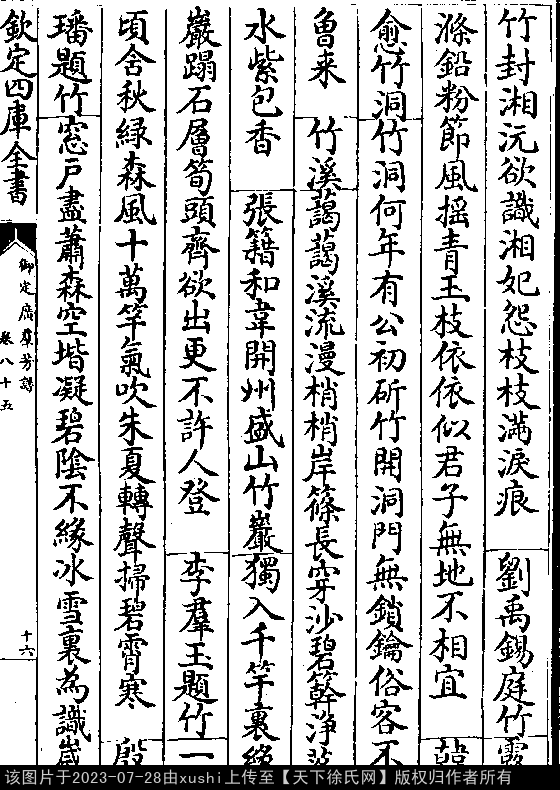 竹封湘沅欲識湘妃怨枝枝滿淚痕 劉禹錫庭竹露
滌鉛粉節風搖青玉枝依依似君子無地不相宜 韓
愈竹洞竹洞何年有公初斫竹開洞門無鎖鑰俗客不
曾来 竹溪藹藹溪流漫梢梢岸篠長穿沙碧簳淨落
水紫包香 張籍和韋開州盛山竹巖獨入千竿裏緣
巖蹋石層筍頭齊欲出更不許人登 李羣玉題竹一
頃含秋綠森風十萬竿氣吹朱夏轉聲掃碧霄寒 殷
璠題竹窓戶盡蕭森空堦凝碧陰不緣冰雪裏為識歲
欽定四庫全書
御定廣羣芳譜
卷八十五
十六
该图片于2023-07-28由xushi上传至【天下徐氏网】版权归作者所有